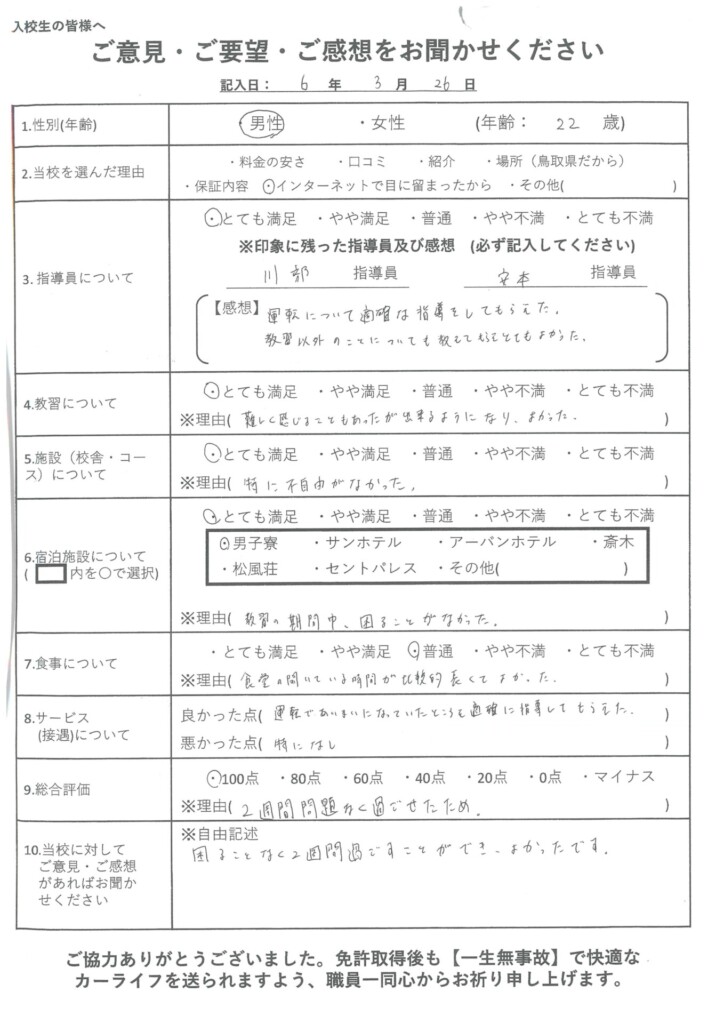 入校生の皆様へ
ご意見・ご要望・ご感想をお聞かせください
記入日： 6 年 3 月 26 日
1.性別(年齢) ・男性 ・女性 (年齢： 22 歳)
2.当校を選んだ理由 ・料金の安さ ・口コミ ・紹介 ・場所（鳥取県だから）
・保証内容 ・インターネットで目に留まったから ・その他( )
3. 指導員について ・とても満足 ・やや満足 ・普通 ・やや不満 ・とても不満
※印象に残った指導員及び感想 (必ず記入してください)
川部 指導員 安本 指導員
【感想】運転について適確な指導をしてもらえた。
教習以外のことについても教えてもらえとてもよかった。
4.教習について ・とても満足 ・やや満足 ・普通 ・やや不満 ・とても不満
※理由( 難しく感じることもあったが出来るようになり、よかった。 )
5.施設（校舎・コース）について ・とても満足 ・やや満足 ・普通 ・やや不満 ・とても不満
※理由( 特に不自由がなかった。 )
6.宿泊施設について
( 内を〇で選択)
・とても満足 ・やや満足 ・普通 ・やや不満 ・とても不満
・男子寮 ・サンホテル ・アーバンホテル ・斎木
・松風荘 ・セントパレス ・その他( )
※理由( 教習の期間中、困ることがなかった。 )
7.食事について ・とても満足 ・やや満足 ・普通 ・やや不満 ・とても不満
※理由( 食堂の開いている時間が比較的長くてよかった。 )
8.サービス
(接遇)について
良かった点( 運転であいまいになっていたところも適確に指導してもらえた。 )
悪かった点( 特になし )
9.総合評価 ・100点 ・80点 ・60点 ・40点 ・20点 ・0点 ・マイナス
※理由( 2週間問題なく過ごせたため。 )
10.当校に対して
ご意見・ご感想
があればお聞か
せください
※自由記述
困ることなく2週間過ごすことができ、よかったです。
ご協力ありがとうございました。免許取得後も【一生無事故】で快適な
カーライフを送られますよう、職員一同心からお祈り申し上げます。